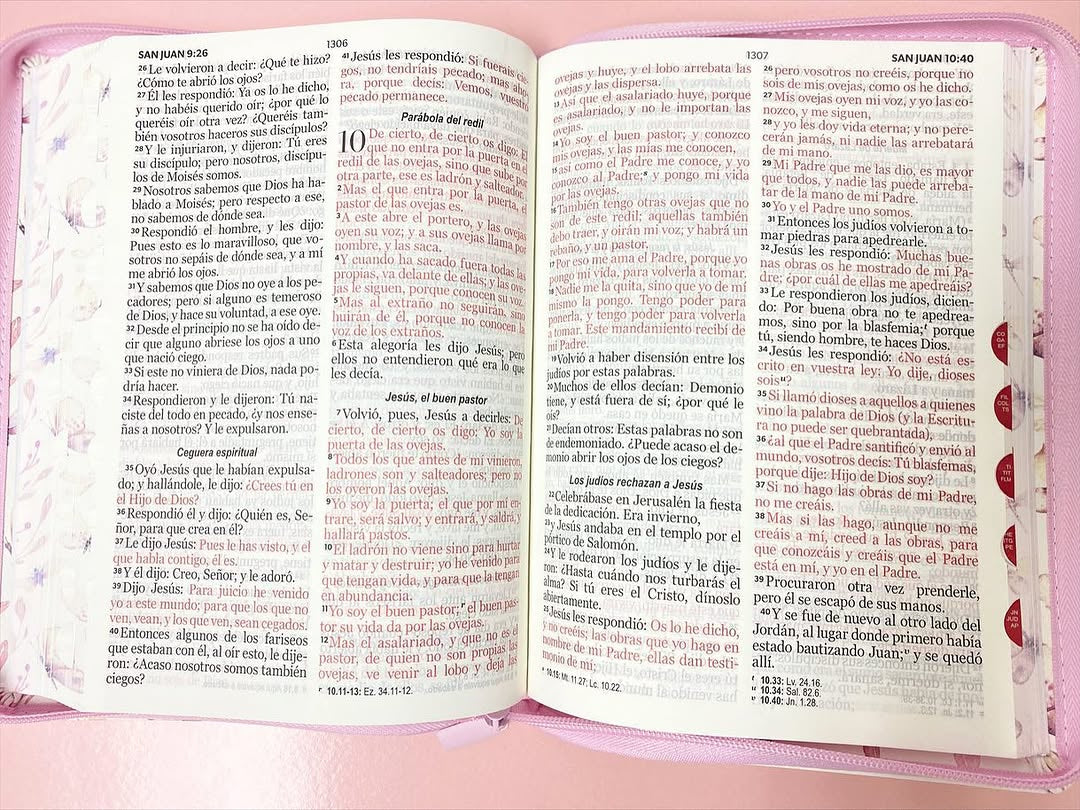 SAN JUAN 9:26
1306
26 Le volvieron a decir: ¿Qué te hizo?
¿Cómo te abrió los ojos?
27 Él les respondió: Ya os lo he dicho,
y no habéis querido oír; ¿por qué lo
queréis oír otra vez? ¿Queréis tam-
bién vosotros haceros sus discípulos?
28 Y le injuriaron, y dijeron: Tú eres
su discípulo; pero nosotros, discípu-
los de Moisés somos.
29 Nosotros sabemos que Dios ha ha-
blado a Moisés; pero respecto a ese,
no sabemos de dónde sea.
30 Respondió el hombre, y les dijo:
Pues esto es lo maravilloso, que vo-
sotros no sepáis de dónde sea, y a mí
me abrió los ojos.
31 Y sabemos que Dios no oye a los pe-
cadores; pero si alguno es temeroso
de Dios, y hace su voluntad, a ese oye.
32 Desde el principio no se ha oído de-
cir que alguno abriese los ojos a uno
que nació ciego.
33 Si este no viniera de Dios, nada po-
dría hacer.
34 Respondieron y le dijeron: Tú na-
ciste del todo en pecado, ¿y nos ense-
ñas a nosotros? Y le expulsaron.
Ceguera espiritual
35 Oyó Jesús que le habían expulsa-
do; y hallándole, le dijo: ¿Crees tú en
el Hijo de Dios?
36 Respondió él y dijo: ¿Quién es, Se-
ñor, para que crea en él?
37 Le dijo Jesús: Pues le has visto, y el
que habla contigo, él es.
38 Y él dijo: Creo, Señor; y le adoró.
39 Dijo Jesús: Para juicio he venido
yo a este mundo; para que los que no
ven, vean, y los que ven, sean cegados.
40 Entonces algunos de los fariseos
que estaban con él, al oír esto, le dije-
ron: ¿Acaso nosotros somos también
ciegos?
41 Jesús les respondió: Si fuerais cie-
gos, no tendríais pecado; mas aho-
ra, porque decís: Vemos, vuestro
pecado permanece.
Parábola del redil
10 De cierto, de cierto os digo: El
que no entra por la puerta en el
redil de las ovejas, sino que sube por
otra parte, ese es ladrón y salteador.
2 Mas el que entra por la puerta, el
pastor de las ovejas es.
3 A este abre el portero, y las ovejas
oyen su voz; y a sus ovejas llama por
nombre, y las saca.
4 Y cuando ha sacado fuera todas las
propias, va delante de ellas; y las ove-
jas le siguen, porque conocen su voz.
5 Mas al extraño no seguirán, sino
huirán de él, porque no conocen la
voz de los extraños.
6 Esta alegoría les dijo Jesús; pero
ellos no entendieron qué era lo que
les decía.
Jesús, el buen pastor
7 Volvió, pues, Jesús a decirles: De
cierto, de cierto os digo: Yo soy la
puerta de las ovejas.
8 Todos los que antes de mí vinieron,
ladrones son y salteadores; pero no
los oyeron las ovejas.
9 Yo soy la puerta; el que por mí en-
trare, será salvo; y entrará, y saldrá, y
hallará pastos.
10 El ladrón no viene sino para hurtar
y matar y destruir; yo he venido para
que tengan vida, y para que la tengan
en abundancia.
11 Yo soy el buen pastor; r el buen pas-
tor su vida da por las ovejas.
12 Mas el asalariado, y que no es el
pastor, de quien no son propias las
ovejas, ve venir al lobo y deja las
r 10.11-13: Ez. 34.11-12.
1307
SAN JUAN 10:40
ovejas y huye, y el lobo arrebata las
ovejas y las dispersa.
13 Así que el asalariado huye, porque
es asalariado, y no le importan las
ovejas.
14 Yo soy el buen pastor; y conozco
mis ovejas, y las mías me conocen,
15 así como el Padre me conoce, y yo
conozco al Padre; s y pongo mi vida
por las ovejas.
16 También tengo otras ovejas que no
son de este redil; aquellas también
debo traer, y oirán mi voz; y habrá un
rebaño, y un pastor.
17 Por eso me ama el Padre, porque yo
pongo mi vida, para volverla a tomar.
18 Nadie me la quita, sino que yo de mí
mismo la pongo. Tengo poder para
ponerla, y tengo poder para volverla
a tomar. Este mandamiento recibí de
mi Padre.
19 Volvió a haber disensión entre los
judíos por estas palabras.
20 Muchos de ellos decían: Demonio
tiene, y está fuera de sí; ¿por qué le
oís?
21 Decían otros: Estas palabras no son
de endemoniado. ¿Puede acaso el de-
monio abrir los ojos de los ciegos?
Los judíos rechazan a Jesús
22 Celebrábase en Jerusalén la fiesta
de la dedicación. Era invierno,
23 y Jesús andaba en el templo por el
pórtico de Salomón.
24 Y le rodearon los judíos y le dije-
ron: ¿Hasta cuándo nos turbarás el
alma? Si tú eres el Cristo, dínoslo
abiertamente.
25 Jesús les respondió: Os lo he dicho,
y no creéis; las obras que yo hago en
nombre de mi Padre, ellas dan testi-
monio de mí;
s 10.15: Mt. 11.27; Lc. 10.22.
26 pero vosotros no creéis, porque no
sois de mis ovejas, como os he dicho.
27 Mis ovejas oyen mi voz, y yo las co-
nozco, y me siguen,
28 y yo les doy vida eterna; y no pere-
cerán jamás, ni nadie las arrebatará
de mi mano.
29 Mi Padre que me las dio, es mayor
que todos, y nadie las puede arreba-
tar de la mano de mi Padre.
30 Yo y el Padre uno somos.
31 Entonces los judíos volvieron a to-
mar piedras para apedrearle.
32 Jesús les respondió: Muchas bue-
nas obras os he mostrado de mi Pa-
dre; ¿por cuál de ellas me apedreáis?
33 Le respondieron los judíos, dicien-
do: Por buena obra no te apedrea-
mos, sino por la blasfemia; t porque
tú, siendo hombre, te haces Dios.
34 Jesús les respondió: ¿No está es-
crito en vuestra ley: Yo dije, dioses
sois u?
35 Si llamó dioses a aquellos a quienes
vino la palabra de Dios (y la Escritu-
ra no puede ser quebrantada),
36 ¿al que el Padre santificó y envió al
mundo, vosotros decís: Tú blasfemas,
porque dije: Hijo de Dios soy?
37 Si no hago las obras de mi Padre,
no me creáis.
38 Mas si las hago, aunque no me
creáis a mí, creed a las obras, para
que conozcáis y creáis que el Padre
está en mí, y yo en el Padre.
39 Procuraron otra vez prenderle,
pero él se escapó de sus manos.
40 Y se fue de nuevo al otro lado del
Jordán, al lugar donde primero había
estado bautizando Juan; v y se quedó
allí.
t 10.33: Lv. 24.16.
u 10.34: Sal. 82.6.
v 10.40: Jn. 1.28.
CO
GA
EF
FIL
COL
TS
TI
TIT
FLM
HE
STG
PE
JN
JUD
AP